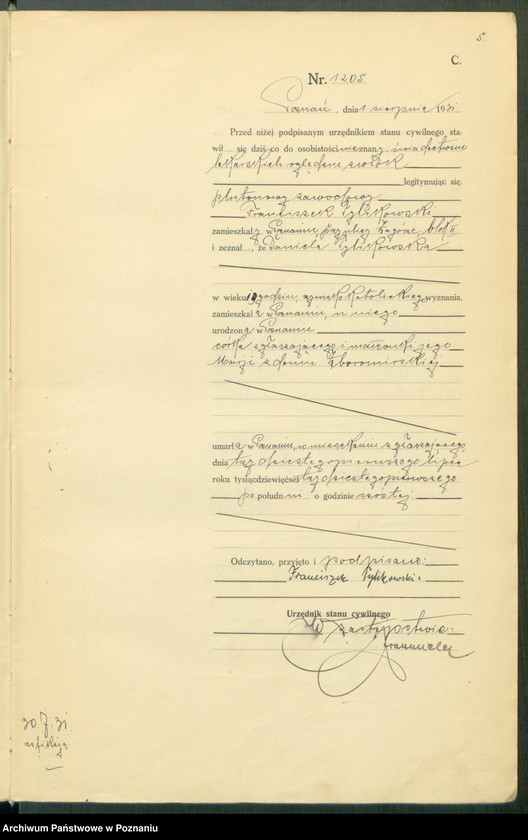 5.
C.
Nr. 1205
Poznań, dnia 1 sierpnia 1931.
Przed niżej podpisanym urzędnikiem stanu cywilnego sta-
wił się dziś co do osobistości nieznany, świadectwem
lekarskich oględzin zwłok
legitymując się.
plutonowy zawodowy
Franciszek Pylikowski
zamieszkały w Poznaniu przy ulicy blok II
i zeznał, że Daniela Pylikowska
w wieku 19 godzin, rzymsko katolickiego wyznania.
zamieszkała w Poznaniu, u niego
urodzona w Poznaniu
córka zgłaszającego i małżonki jego
Marji z domu Zboromirskiej
umarła w Poznaniu, w mieszkaniu zgłaszającego
dnia trzydziestego pierwszego lipca
roku tysiąc dziewięćset trzydziestego pierwszego
po południu o godzinie szóstej
Odczytano, przyjęto i podpisano:
Franciszek Pylikowski.
Urzędnik stanu cywilnego
W zastępstwie:
30.7.31.
Archiwum Państwowe w Poznaniu